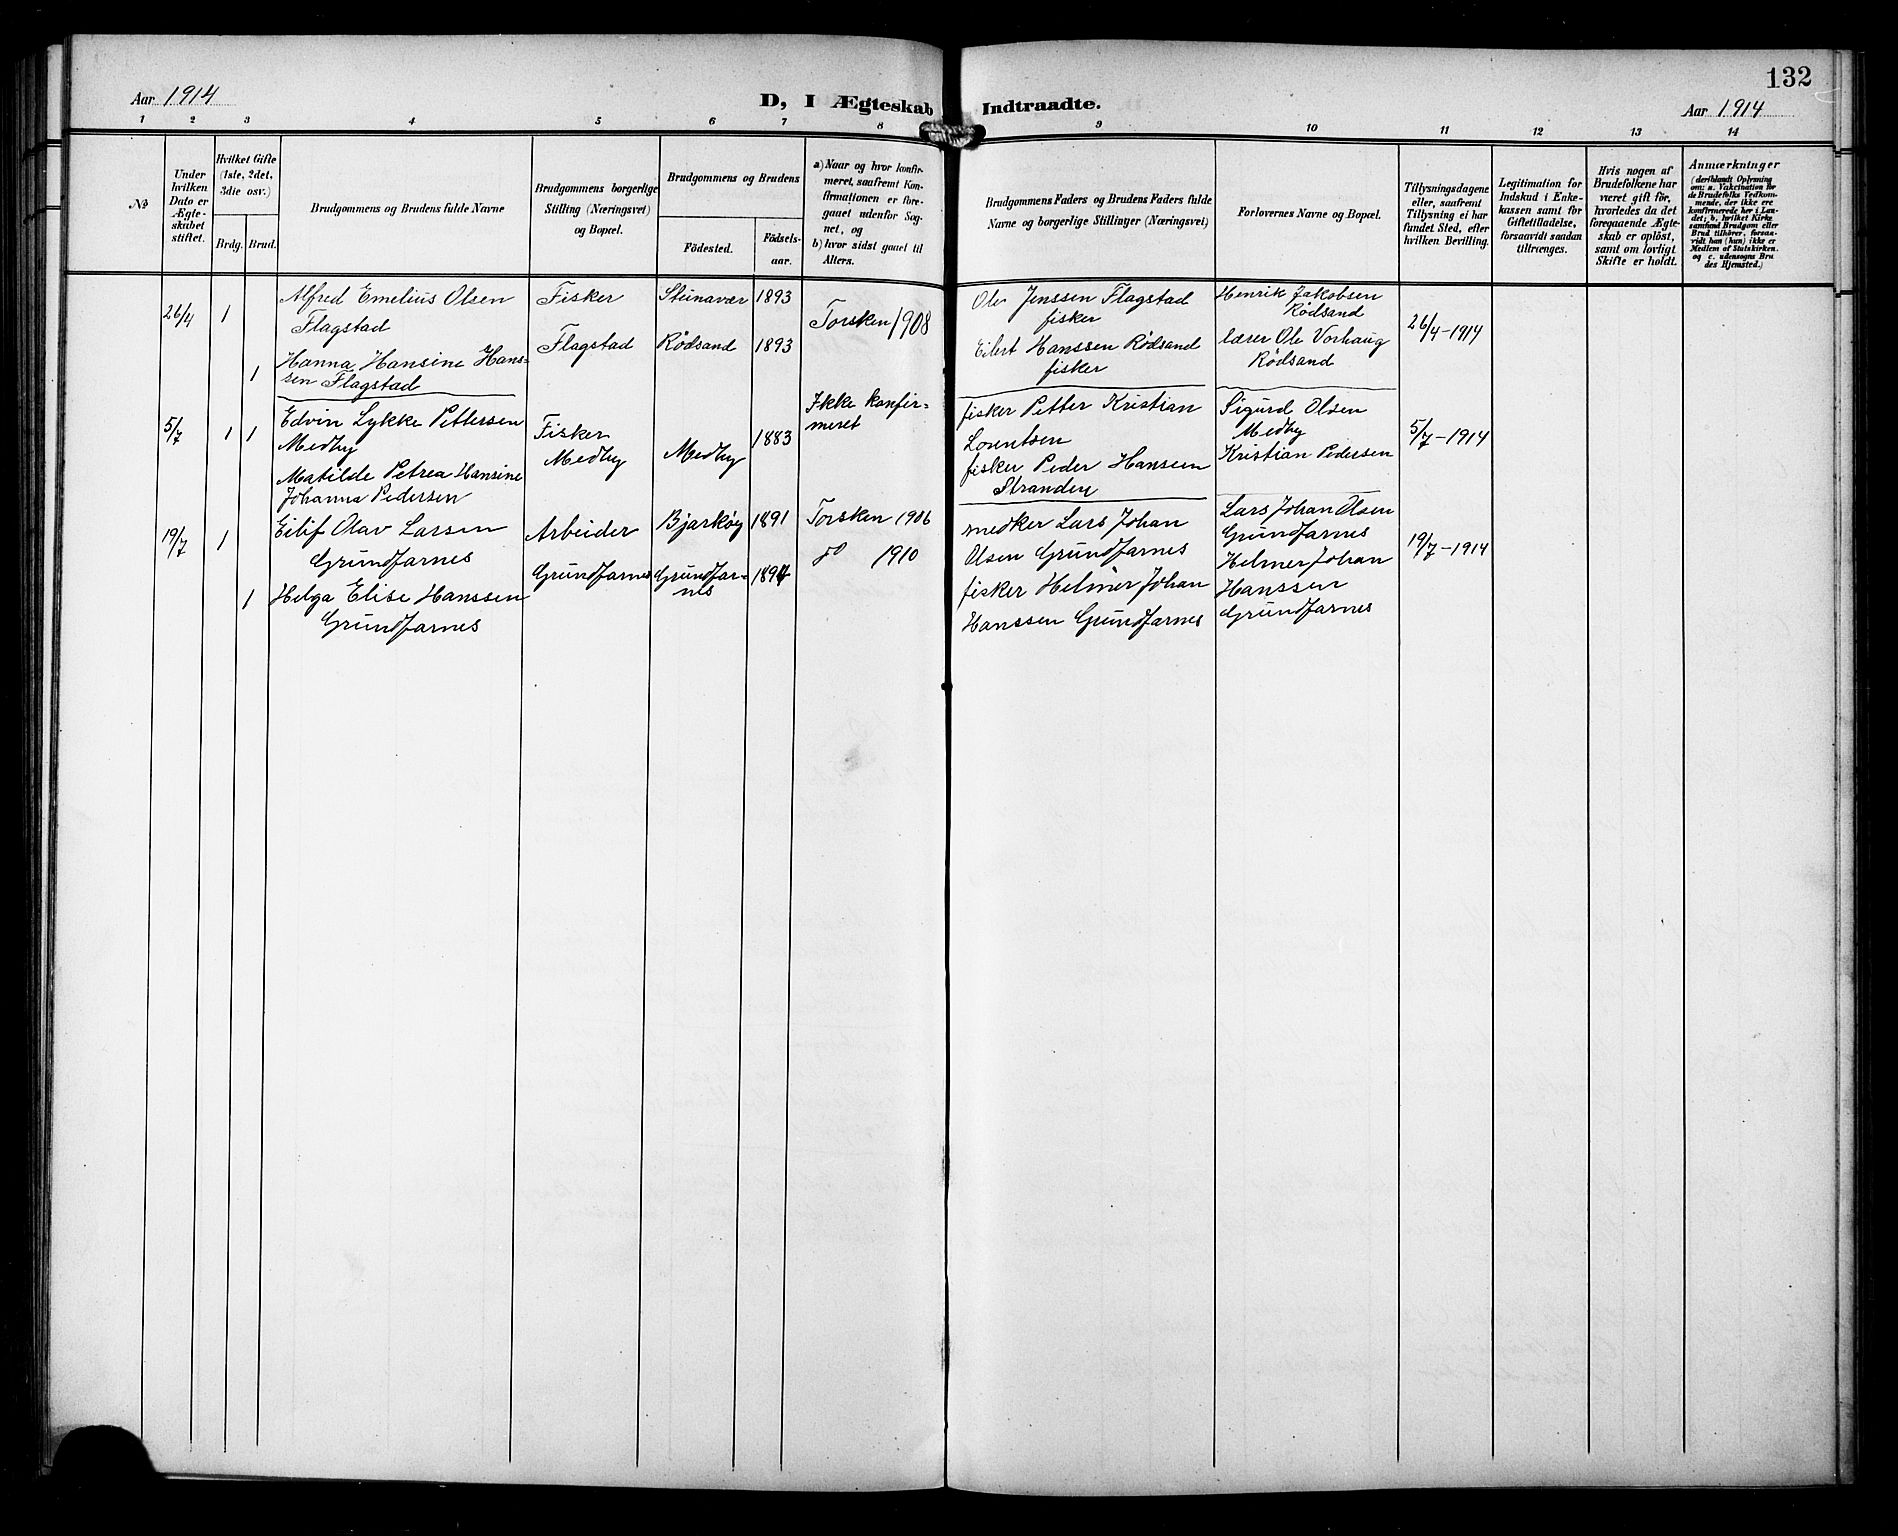 132
Aar 1914
D, I Ægteskab Indtraadte.
Aar 1914
1 2 3 4 5 6 7 8 9 10 11 12 13 14
No
Under
hvilken
Dato er
Ægte-
skabet
stiftet.
Hvilket Gifte
(1ste, 2det,
3die osv.)
Brdg. Brud.
Brudgommens og Brudens fulde Navne
Brudgommens borgerlige
Stilling (Næringsvei)
og Bopæl.
Brudgommens og Brudens
Födested.
Födsels-
aar.
a) Naar og hvor konfir-
meret, saafremt Kon-
firmationen er fore-
gaaet udenfor Sog-
net, og
b) hvor sidst gaaet til
Alters.
Brudgommens Faders og Brudens Faders fulde
Navne og borgerlige Stillinger (Næringsvei)
Forlovernes Navne og Bopæl.
Tillysningsdagene
eller, saafremt
Tillysning ei har
fundet Sted, efter
hvilken Bevilling.
Legitimation for
Indskud i Enke-
kassen samt for
Giftetilladelse,
forsaavidt saadan
tiltrænges.
Hvis nogen af
Brudefolkene har
været gift för,
hvorledes da det
foregaaende Ægte-
skab er oplöst,
samt om lovligt
Skifte er holdt.
Anmærkninger
(deriblandt Oplysning
om: a. Vakcination for
de Brudefolks Vedkom-
mende, der ikke ere
konfirmerede her i Lan-
det; b. hvilket Kirke
samfund Brudgom eller
Brud tilhörer, forsaa-
vidt han (hun) ikke er
Medlem af Statskirken.
og c. udensogns Bru
des Hjemsted.)
26/4
1
Alfred Emelius Olsen
Flagstad
1
Hanna Hansine Hans-
sen Flagstad
Fisker
Flagstad
Steinavær 1893
Rødsand 1893
Torsken 1908
Ole Jenssen Flagstad
fisker
Eilert Hanssen Rødsand
fisker
Henrik Jakobsen
Rødsand
lærer Ole Vorhaug
Rødsand
26/4-1914
5/7
1 1
Edvin Lykke Pettersen
Medby
Matilde Petrea Hansine
Johanna Pedersen
Fisker
Medby
Medby
1883
Ikke konfir-
meret
fisker Petter Kristian
Lorentsen
fisker Peder Hansen
Stranden
Sigurd Olsen
Medby
Kristian Pedersen
5/7-1914
19/7
1
Eilif Olav Larsen
Grundfarnes
1
Helga Elise Hanssen
Grundfarnes
Arbeider
Grundfarnes
Bjarkøy 1891
Grundfar-
nes
1894
Torsken 1906
do 1910
smedker Lars Johan
Olsen Grundfarnes
fisker Helmer Johan
Hanssen Grundfarnes
Lars Johan Olsen
Grundfarnes
Helmer Johan
Hanssen
Grundfarnes
19/7-1914